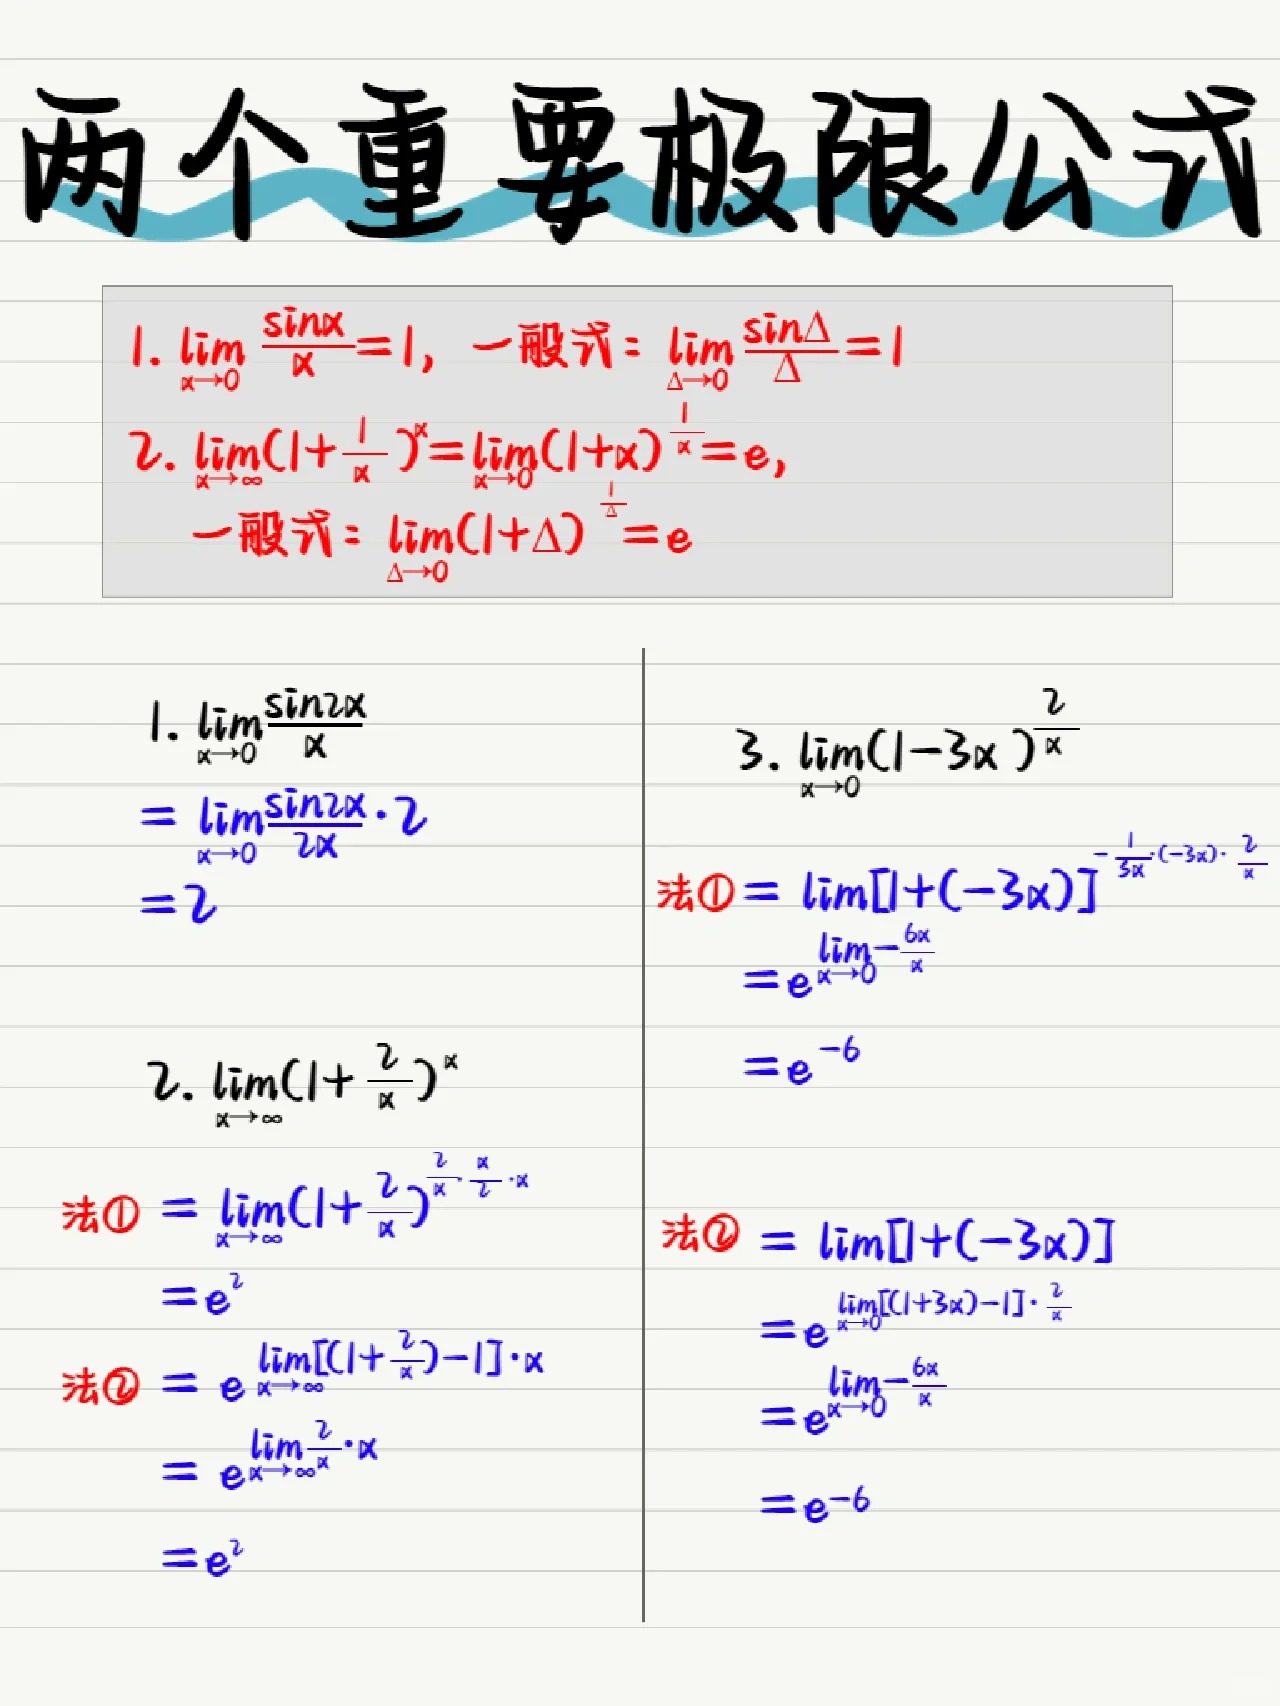 两个重要极限公式
1. lim_{x→0} sinx/x = 1, 一般式: lim_{Δ→0} sinΔ/Δ = 1
2. lim_{x→∞} (1+1/x)^x = lim_{x→0} (1+x)^{1/x} = e,
一般式: lim_{Δ→0} (1+Δ)^{1/Δ} = e
1. lim_{x→0} sin2x/x
= lim_{x→0} sin2x/2x · 2
= 2
2. lim_{x→∞} (1+2/x)^x
法① = lim_{x→∞} (1+2/x)^{2/x · x/2 · x}
= e^2
法② = e^{lim_{x→∞} [(1+2/x)-1]·x}
= e^{lim_{x→∞} 2/x · x}
= e^2
3. lim_{x→0} (1-3x)^{2/x}
法① = lim[1+(-3x)]^{-1/3x · (-3x) · 2/x}
= e^{lim_{x→0} -6x/x}
= e^{-6}
法② = lim[1+(-3x)]
= e^{lim_{x→0} [(1+3x)-1] · 2/x}
= e^{lim_{x→0} -6x/x}
= e^{-6}